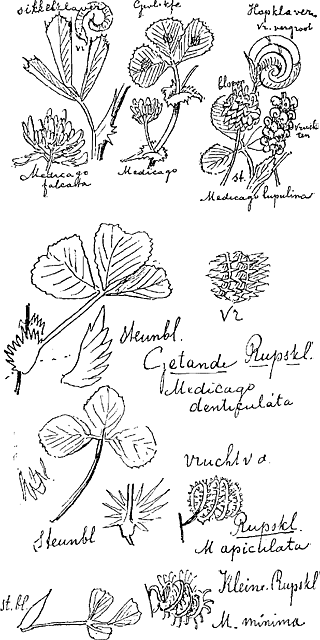 Sikkelklaver
Vr.
Medicago
falcata
Medicago
Hopklaver
Vr. vergroot
bloem
Vruch
ten
st.
Medicago lupulina
Vr
Steunbl.
Getande Rupskl.
Medicago
denticulata
Vrucht v d.
Rupskl.
Steunbl
M apiculata
st. bl.
Kleine Rupskl
M. minima